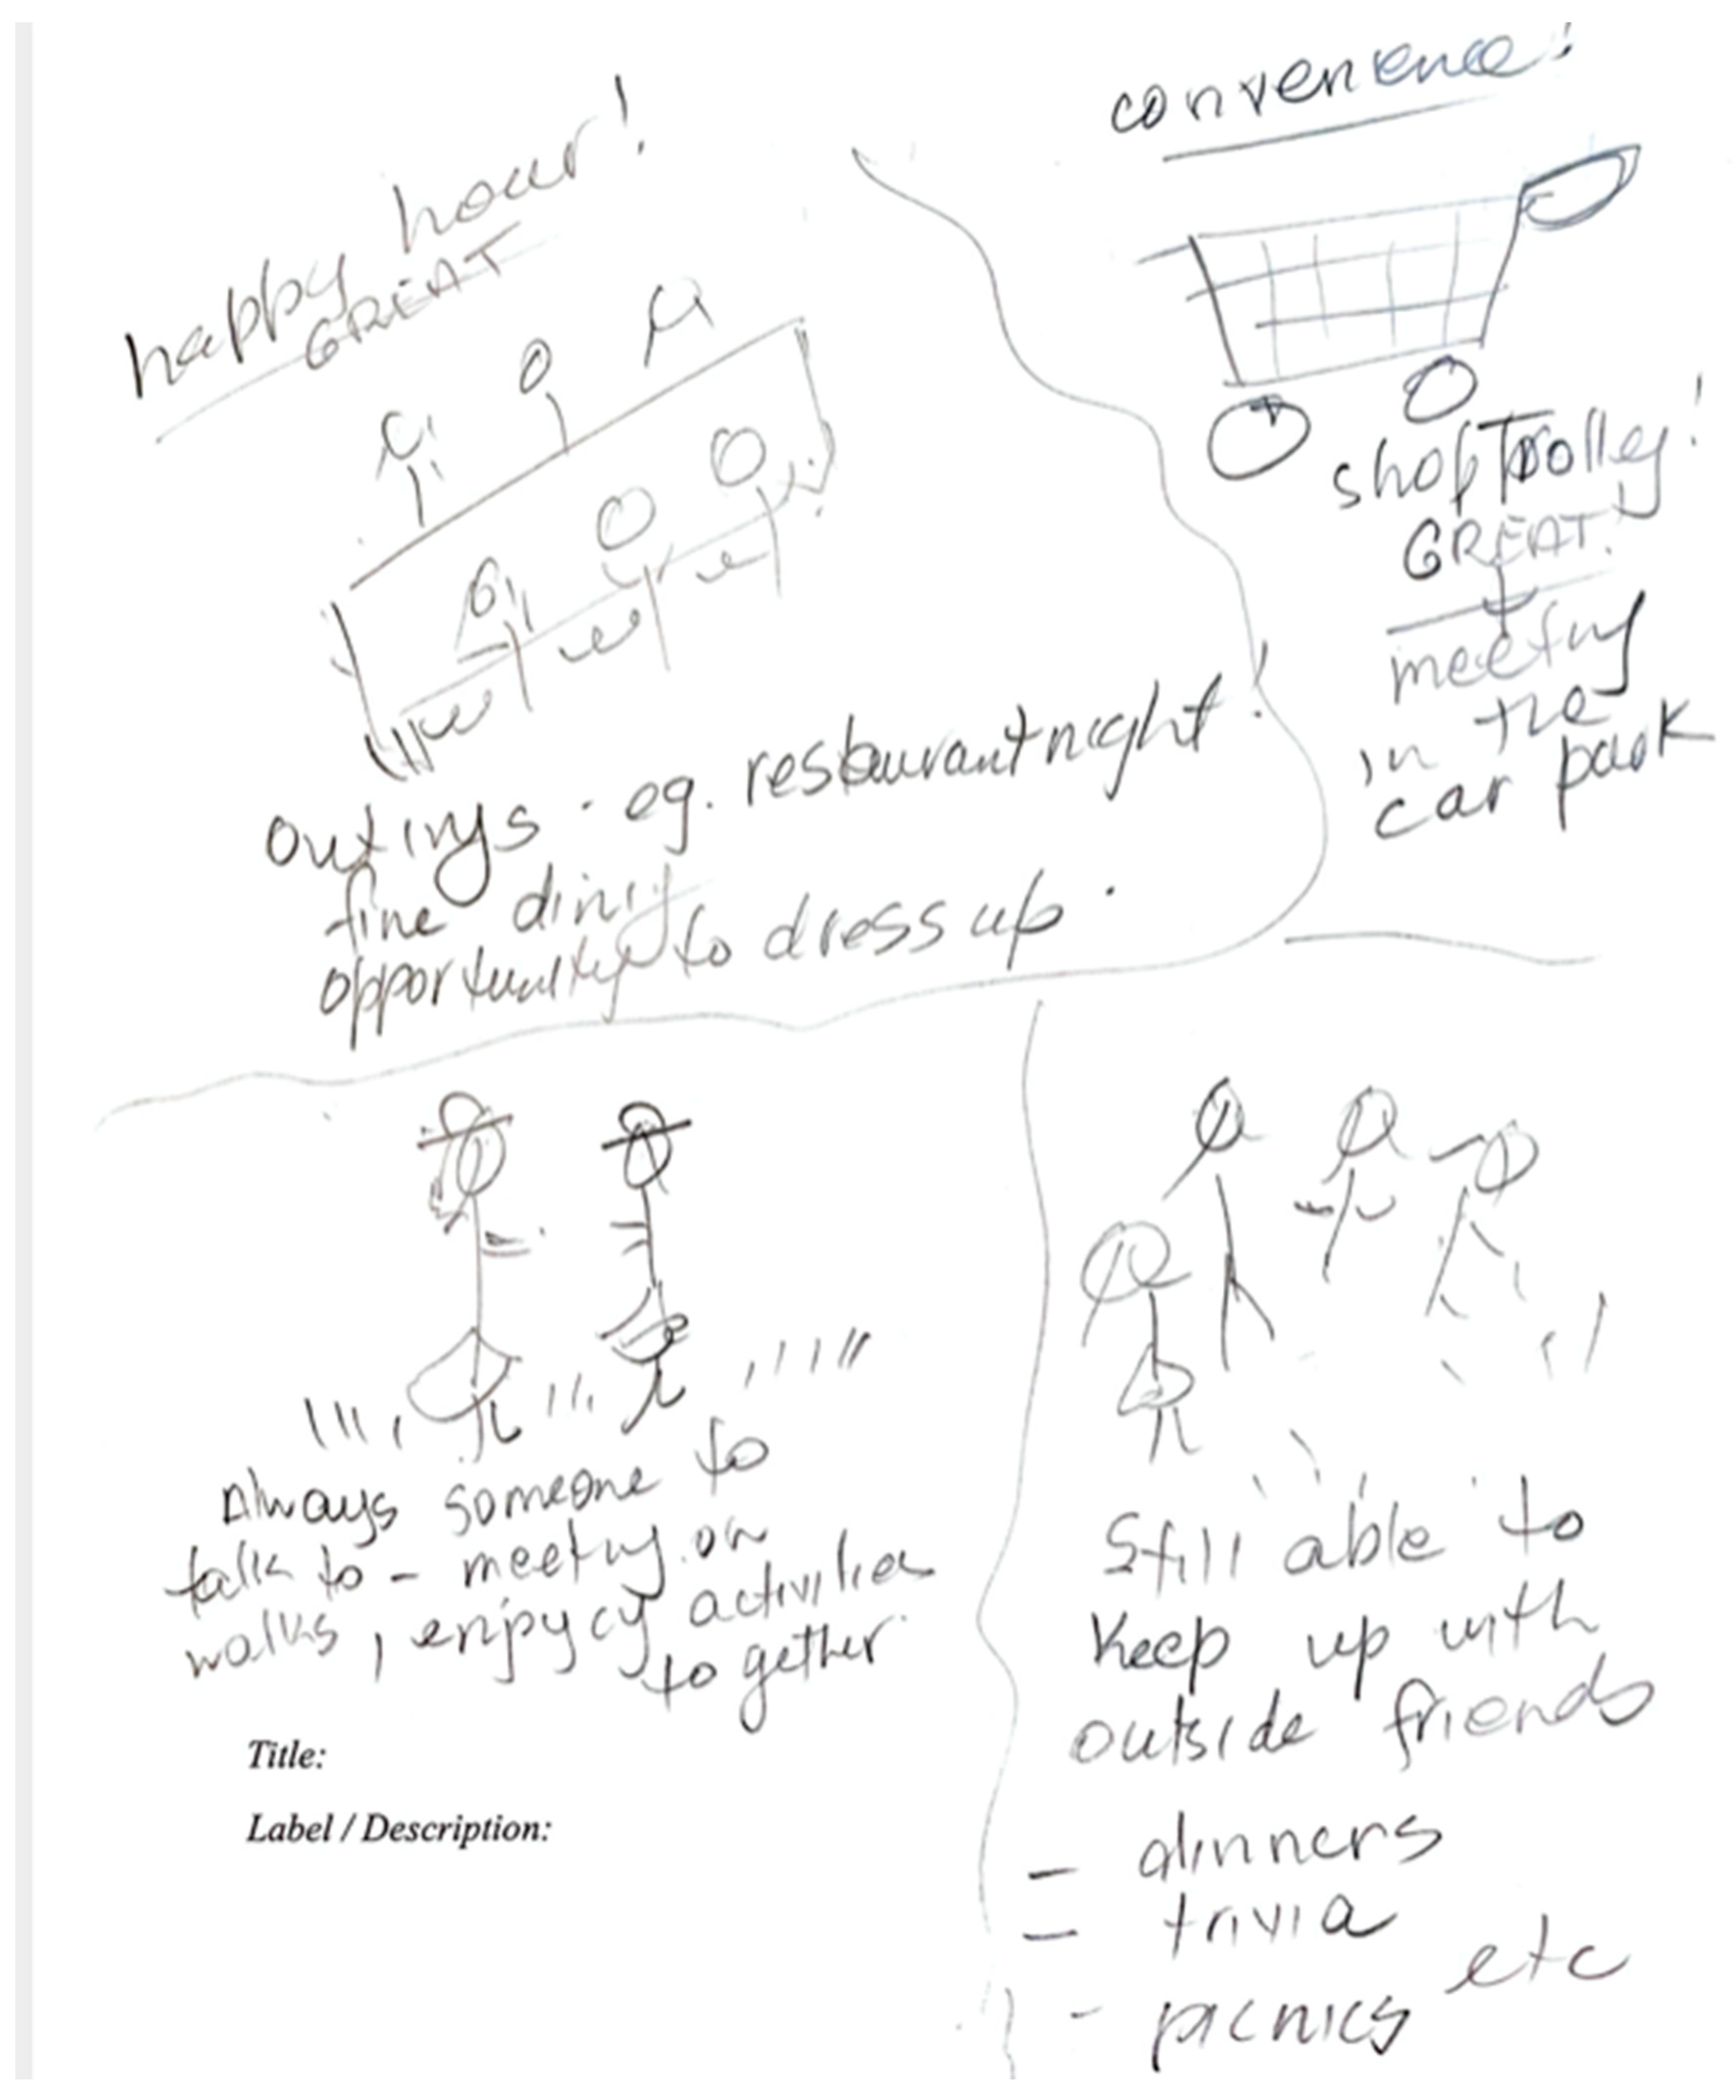 happy hour!
GREAT
outings - eg. restaurant night!
fine dining
opportunity to dress up.
convenience!
shop Trolley!
GREAT!
meeting
in the
car park
Always someone to
talk to - meeting on
walks, enjoy activities
together.
Still able to
keep up with
outside friends
- dinners
- trivia
- picnics etc
Title:
Label / Description: